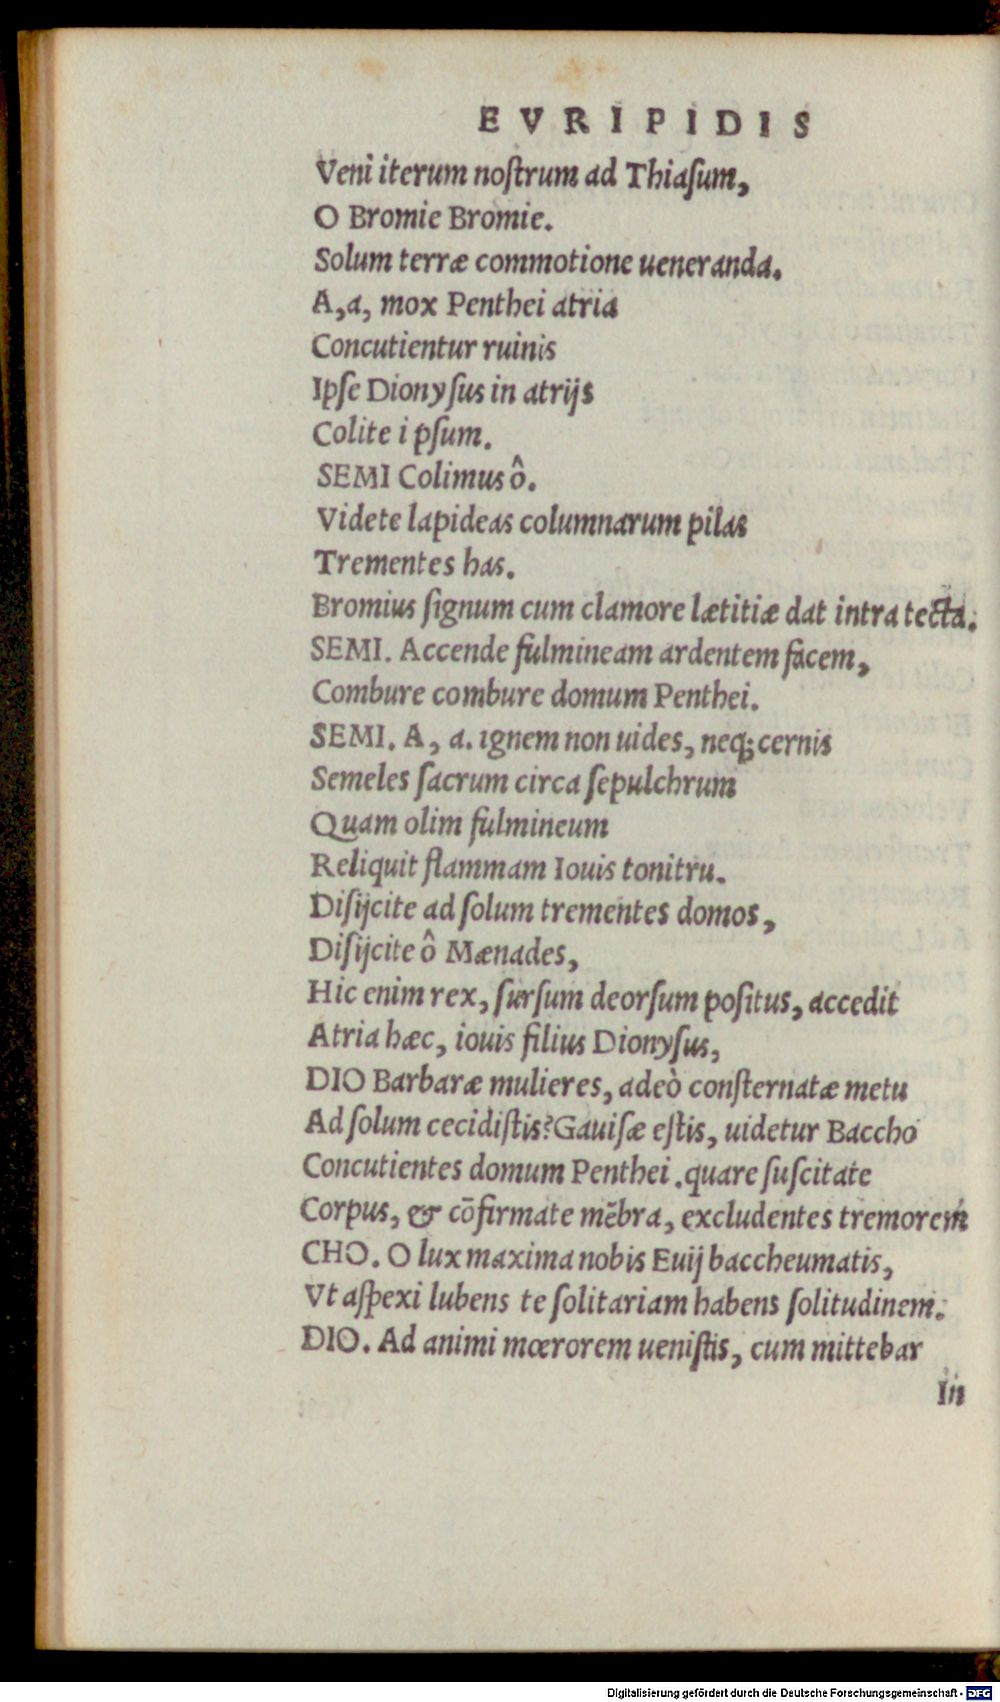 EVRIPIDIS
Veni iterum noſtrum ad Thiaſum,
O Bromie Bromie.
Solum terræ commotione ueneranda.
A,a, mox Penthei atria
Concutientur ruinis
Ipſe Dionyſus in atrijs
Colite ipſum.
SEMI Colimus ô.
Videte lapideas columnarum pilas
Trementes has.
Bromius ſignum cum clamore lætitiæ dat intra tecta.
SEMI. Accende fulmineam ardentem facem,
Combure combure domum Penthei.
SEMI. A, a. ignem non uides, neq; cernis
Semeles ſacrum circa ſepulchrum
Quam olim fulmineum
Reliquit flammam Iouis tonitru.
Diſijcite ad ſolum trementes domos,
Diſijcite ô Mænades,
Hic enim rex, ſurſum deorſum poſitus, accedit
Atria hæc, iouis filius Dionyſus,
DIO Barbaræ mulieres, adeò conſternatæ metu
Ad ſolum cecidiſtis? Gauiſæ eſtis, uidetur Baccho
Concutientes domum Penthei .quare ſuſcitate
Corpus, & cōfirmate mēbra, excludentes tremorem
CHO. O lux maxima nobis Euij baccheumatis,
Vt aſpexi lubens te ſolitariam habens ſolitudinem.
DIO. Ad animi mœrorem ueniſtis, cum mittebar
In
Digitalisierung gefördert durch die Deutsche Forschungsgemeinschaft - DFG